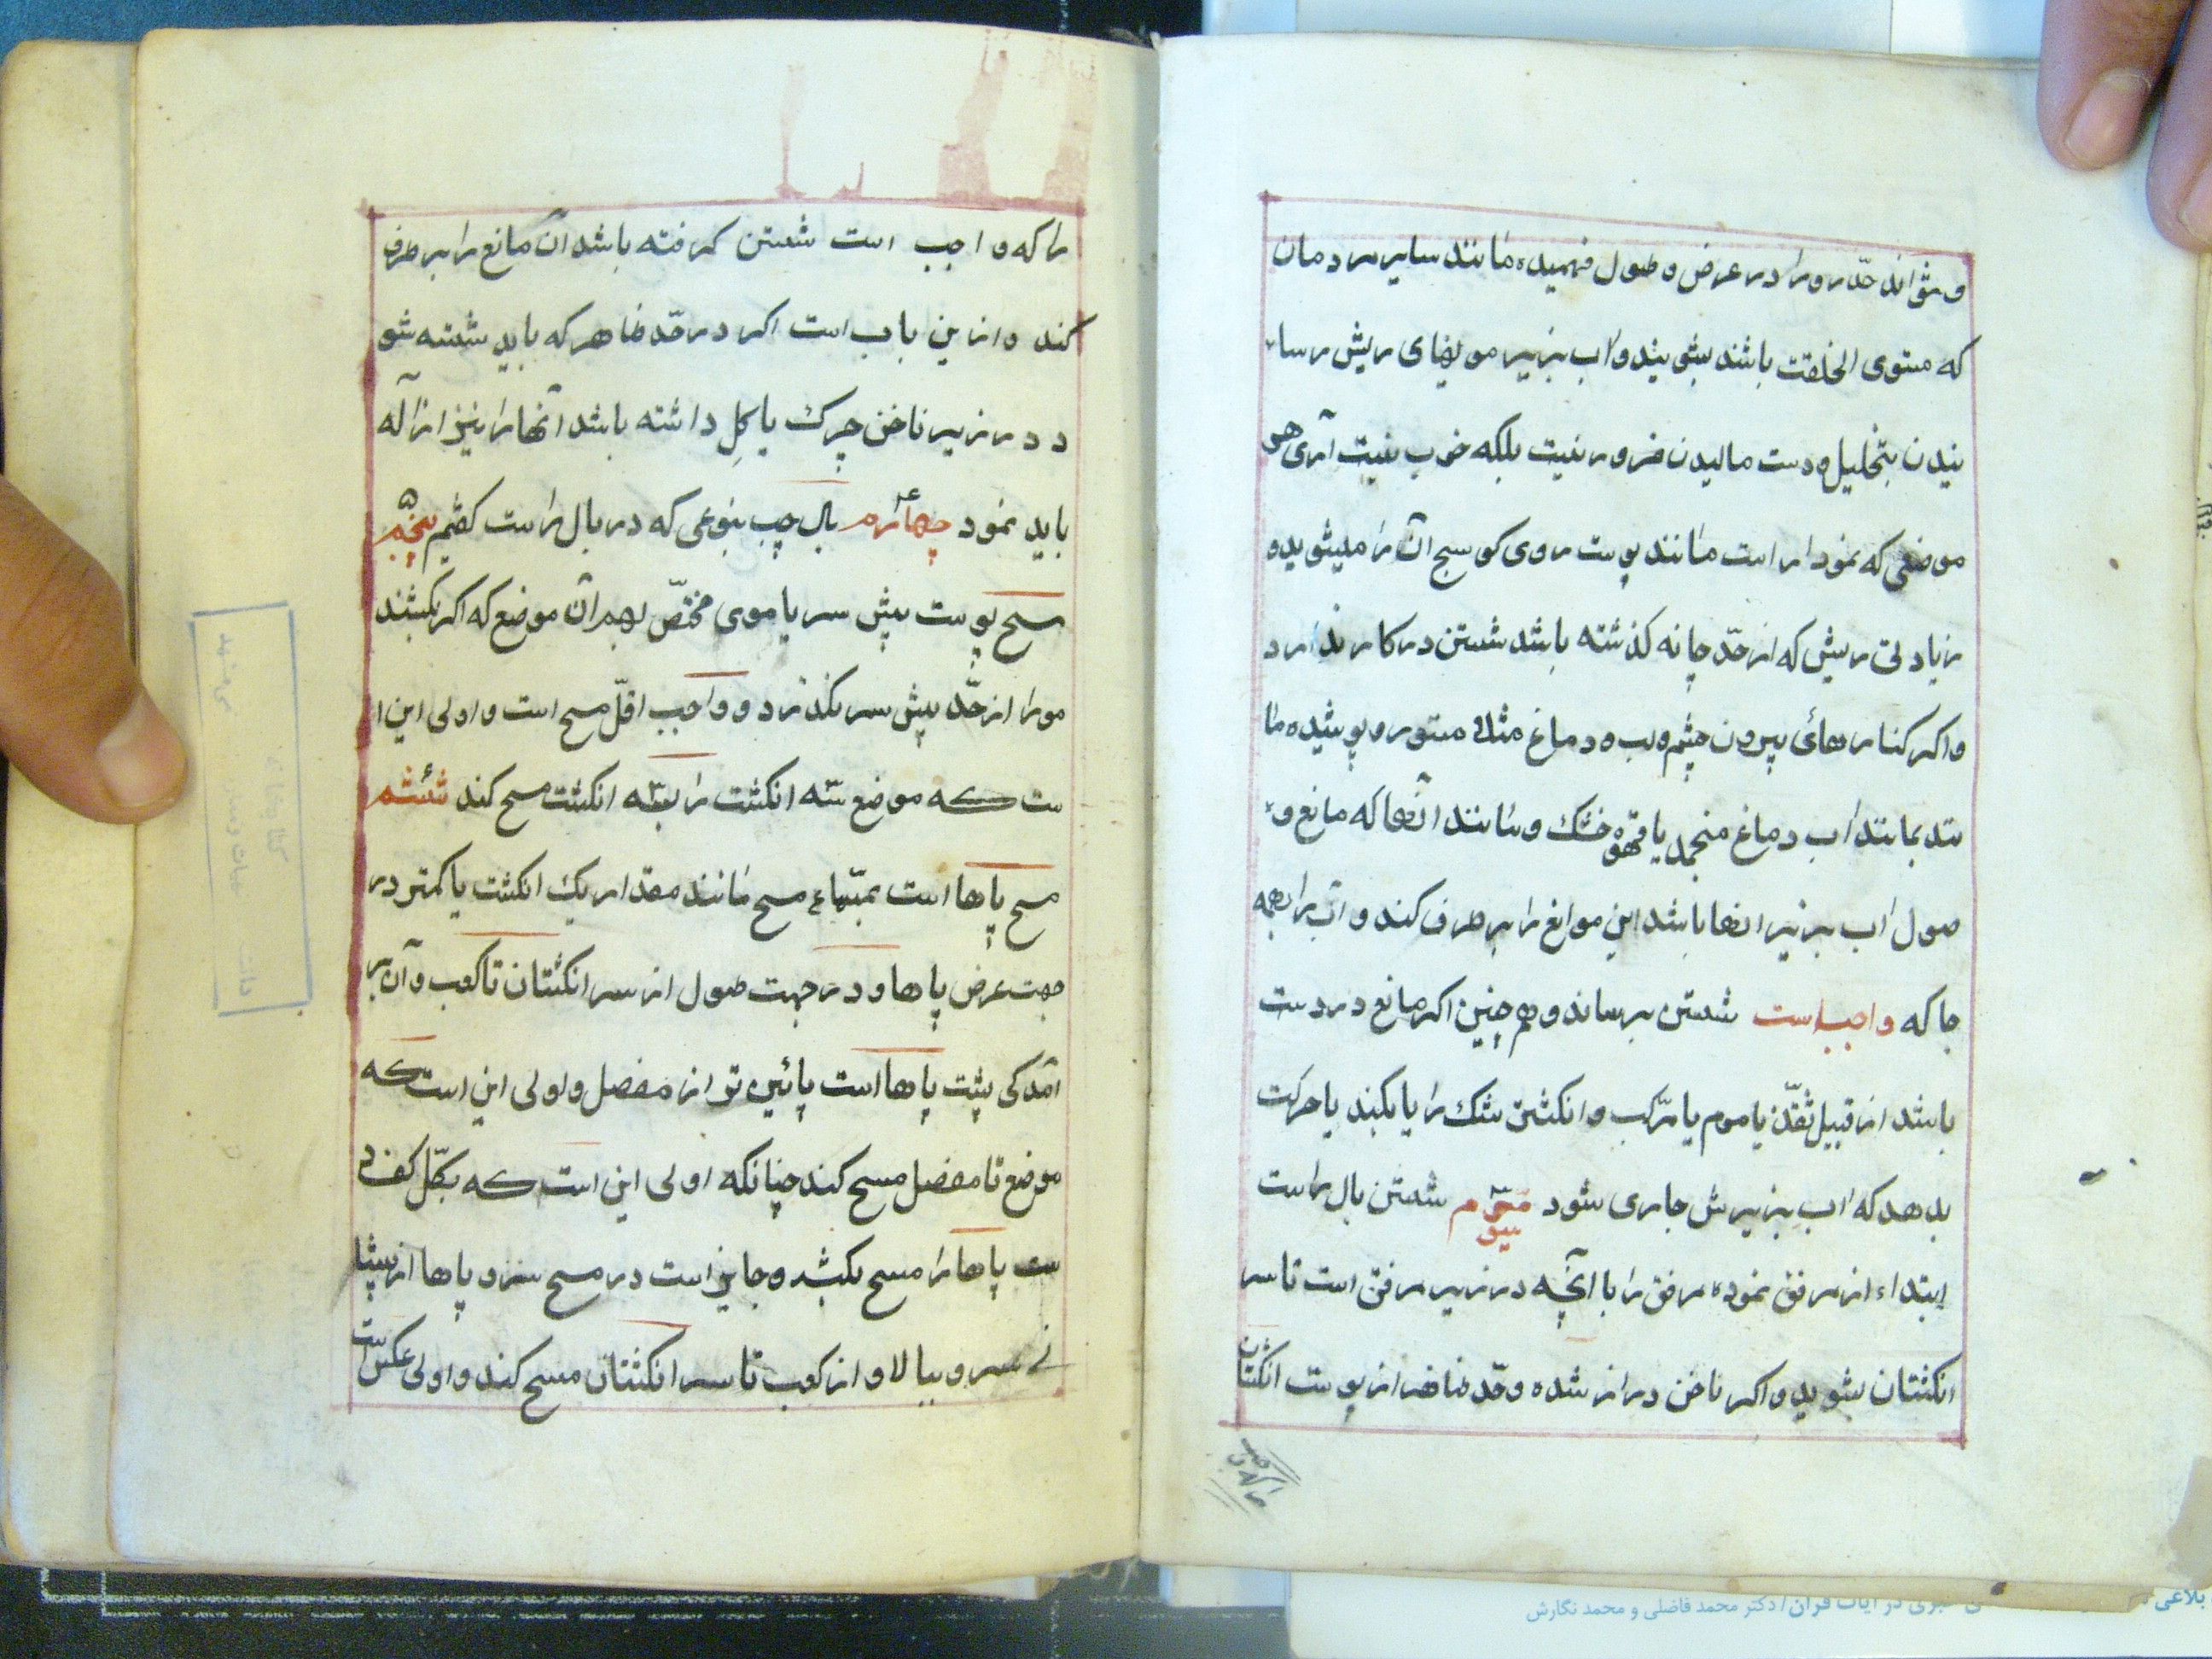 و نتواند حدّ رو را در عرض و طول فهمیده مانند سایر مردمان
که مستوی الخلقت باشند بشویند و آب بزیر مویهای ریش رسا
نیدن بتخلیل و دست مالیدن ضرور نیست بلکه خوب نیست آری هر
موضعی که نمودار است مانند پوست روی کوسج آن را میشوید و
زیادتی ریش که از حدّ چانه گذشته باشد شستن در کار ندارد
و اگر کنارهائی بیرون چشم و لب و دماغ مثلا مستور و پوشیده با
شد بمانند آب دماغ منجمد یا قهوه خشک و مانند آنها که مانع و
صول آب بزیر آنها باشد این موانع را بر طرف کند و آب را بهمه
جا که واجب است شستن برساند و هم چنین اگر مانع در دست
باشد از قبیل یا موم یا مرکب و انگشتر تنک را یا بکند یا حرکت
بدهد که آب بزیرش جاری شود سیّوم شستن بال راست
ابتداء از مرفق نموده مرفق را با آنچه در زیر مرفق است تا سر
انگشتان بشوید و اگر ناخن دراز شده و حدّ ظاهر از پوست انگشتان
را که واجب
را که واجب است شستن گرفته باشد آن مانع را بر طرف
کند و از این باب است اگر در حدّ ظاهر که باید شسته شو
د در زیر ناخن چرک یا گِل داشته باشد آنها را نیز ازاله
باید نمود چهارم بال چپ بنوعی که در بال راست گفتیم پنجم
مسح پوست پیش سر یا موی مختصّ بهمان موضع که اگر بکشند
مو را از حدّ پیش سر نگذرد و واجب اقلّ مسح است و اولی این ا
ست که موضع سه انگشت را بسه انگشت مسح کند ششم
مسح پاها است بمسمّاء مسح مانند مقدار یک انگشت یا کمتر در
جهت عرض پاها و در جهت طول از سر انگشتان تا کعب و آن بر
آمدکی پشت پاها است پائین تر از مفصل و اولی این است که
موضع تا مفصل مسح کند چنانکه اولی این است که بکلّ کف د
ست پاها را مسح بکشد و جایز است در مسح سر و پاها از پیشا
نی سر و ببالا و از کعب تا سر انگشتان مسح کند و اولی عکس است